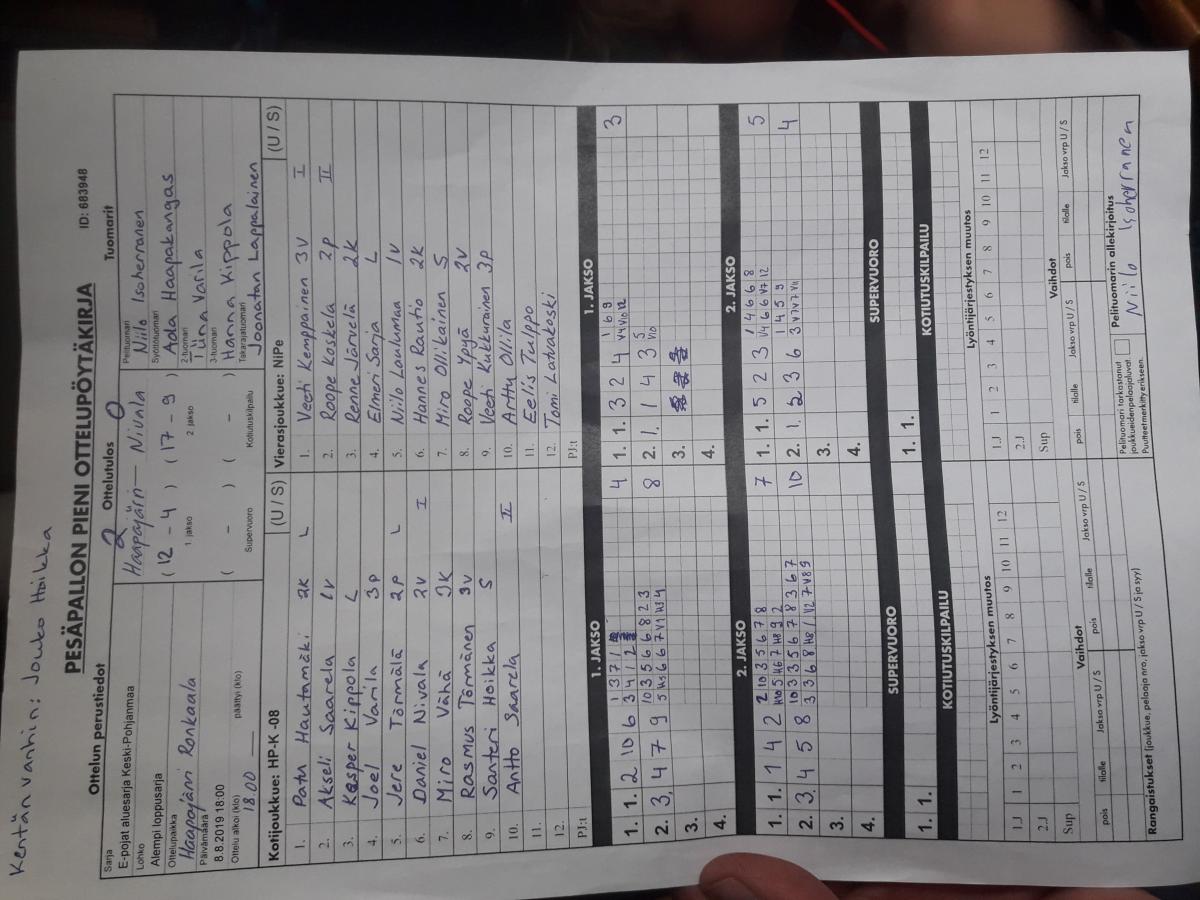 Kentän vanhin: Jouko Hoikka
PESÄPALLON PIENI OTTELUPÖYTÄKIRJA
ID: 683948
Ottelun perustiedot
Sarja
E-pojat aluesarja Keski-Pohjanmaa
Lohko
Alempi loppusarja
Ottelupaikka
Haapajärvi Ronkaala
Päivämäärä
8.8.2019 18:00
Ottelu alkoi (klo) päättyi (klo)
18.00
Ottelutulos
2 0
Haapajärvi — Nivala
( 12 - 4 ) ( 17 - 9 )
1. jakso 2. jakso
( - ) ( - )
Supervuoro Kotiutuskilpailu
Tuomarit
Pelituomari
Niilo Isoherranen
Syöttötuomari
Ada Haapakangas
2-tuomari
Tiina Varila
3-tuomari
Hanna Kippola
Takarajatuomari
Joonatan Lappalainen
Kotijoukkue: HP-K -08 (U / S)
1. Patu Hautamäki 2K L
2. Akseli Saarela 1v
3. Kasper Kippola L
4. Joel Varila 3P
5. Jere Törmälä 2P L
6. Daniel Nivala 2V I
7. Miro Vähä 3K
8. Rasmus Törmänen 3v
9. Santeri Hoikka S
10. Antto Saarela II
11.
12.
PJ:t
Vierasjoukkue: NiPe (U / S)
1. Veeti Kemppainen 3V I
2. Roope Koskela 2p II
3. Renne Järvelä 2k
4. Elmeri Sarja L
5. Niilo Laulumaa 1v
6. Hannes Rautio 2k
7. Miro Ollikainen S
8. Roope Ypyä 2v
9. Veeti Kukkurainen 3p
10. Arttu Ollila
11. Eelis Tulppo
12. Tomi Latvakoski
PJ:t
1. JAKSO
1. 1. 2 10 6 4
2. 3. 4 7 9 8
3.
4.
1. JAKSO
1. 1. 3 2 4 3
2. 1. 1 4 3
3.
4.
2. JAKSO
1. 1. 1 4 2 7
2. 3. 4 5 8 10
3.
4.
2. JAKSO
1. 1. 5 2 3 5
2. 1. 2 3 6 4
3.
4.
SUPERVUORO
1. 1.
SUPERVUORO
1. 1.
KOTIUTUSKILPAILU
KOTIUTUSKILPAILU
Lyöntijärjestyksen muutos
1.J 1 2 3 4 5 6 7 8 9 10 11 12
2.J
Sup
Vaihdot
pois tilalle Jakso vrp U / S pois tilalle Jakso vrp U / S
Lyöntijärjestyksen muutos
1.J 1 2 3 4 5 6 7 8 9 10 11 12
2.J
Sup
Vaihdot
pois tilalle Jakso vrp U / S pois tilalle Jakso vrp U / S
Rangaistukset (joukkue, pelaaja nro, jakso vrp U / S ja syy)
Pelituomari tarkastanut
joukkueidenpelaajaluvat.
Puutteet merkitty erikseen.
Pelituomarin allekirjoitus
Niilo Isoherranen